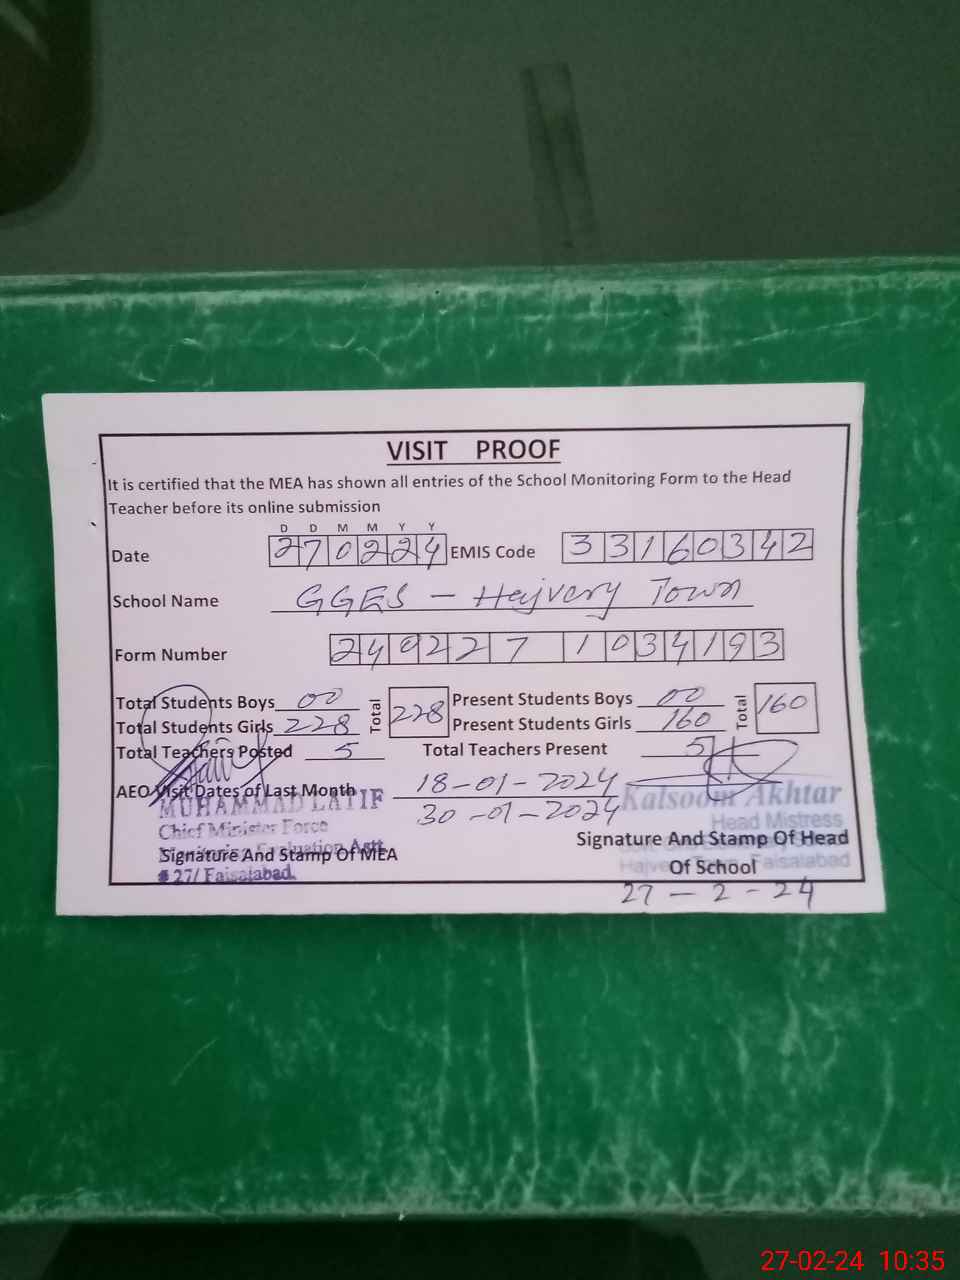 VISIT PROOF
It is certified that the MEA has shown all entries of the School Monitoring Form to the Head
Teacher before its online submission
D D M M Y Y
Date 270224 EMIS Code 33160342
School Name GGES - Hajvery Town
Form Number 249227 1034193
Total Students Boys 00 Present Students Boys 00
Total 228 Total 160
Total Students Girls 228 Present Students Girls 160
Total Teachers Posted 5 Total Teachers Present 5
AEO Visit Dates of Last Month 18-01-2024
30-01-2024
MUHAMMAD LATIF
Chief Minister Force
Monitoring Evaluation Astt.
Signature And Stamp Of MEA
# 27/ Faisalabad.
Kalsoom Akhtar
Head Mistress
Signature And Stamp Of Head
Of School
Faisalabad
27-2-24
27-02-24 10:35